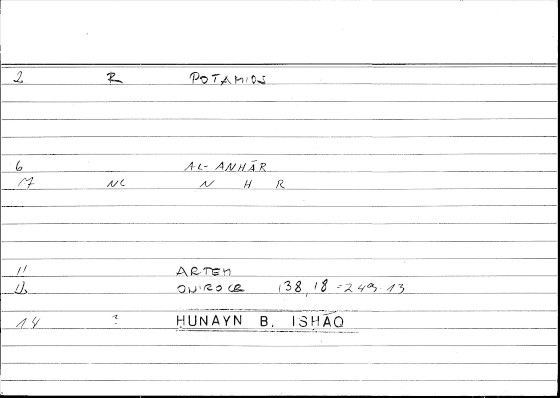 2 R POTAMIOS
6 AL-ANHĀR
17 NC N H R
11 ARTEM
12 ONIROCR 138,18 = 249.13
14 ? HUNAYN B. ISHĀQ